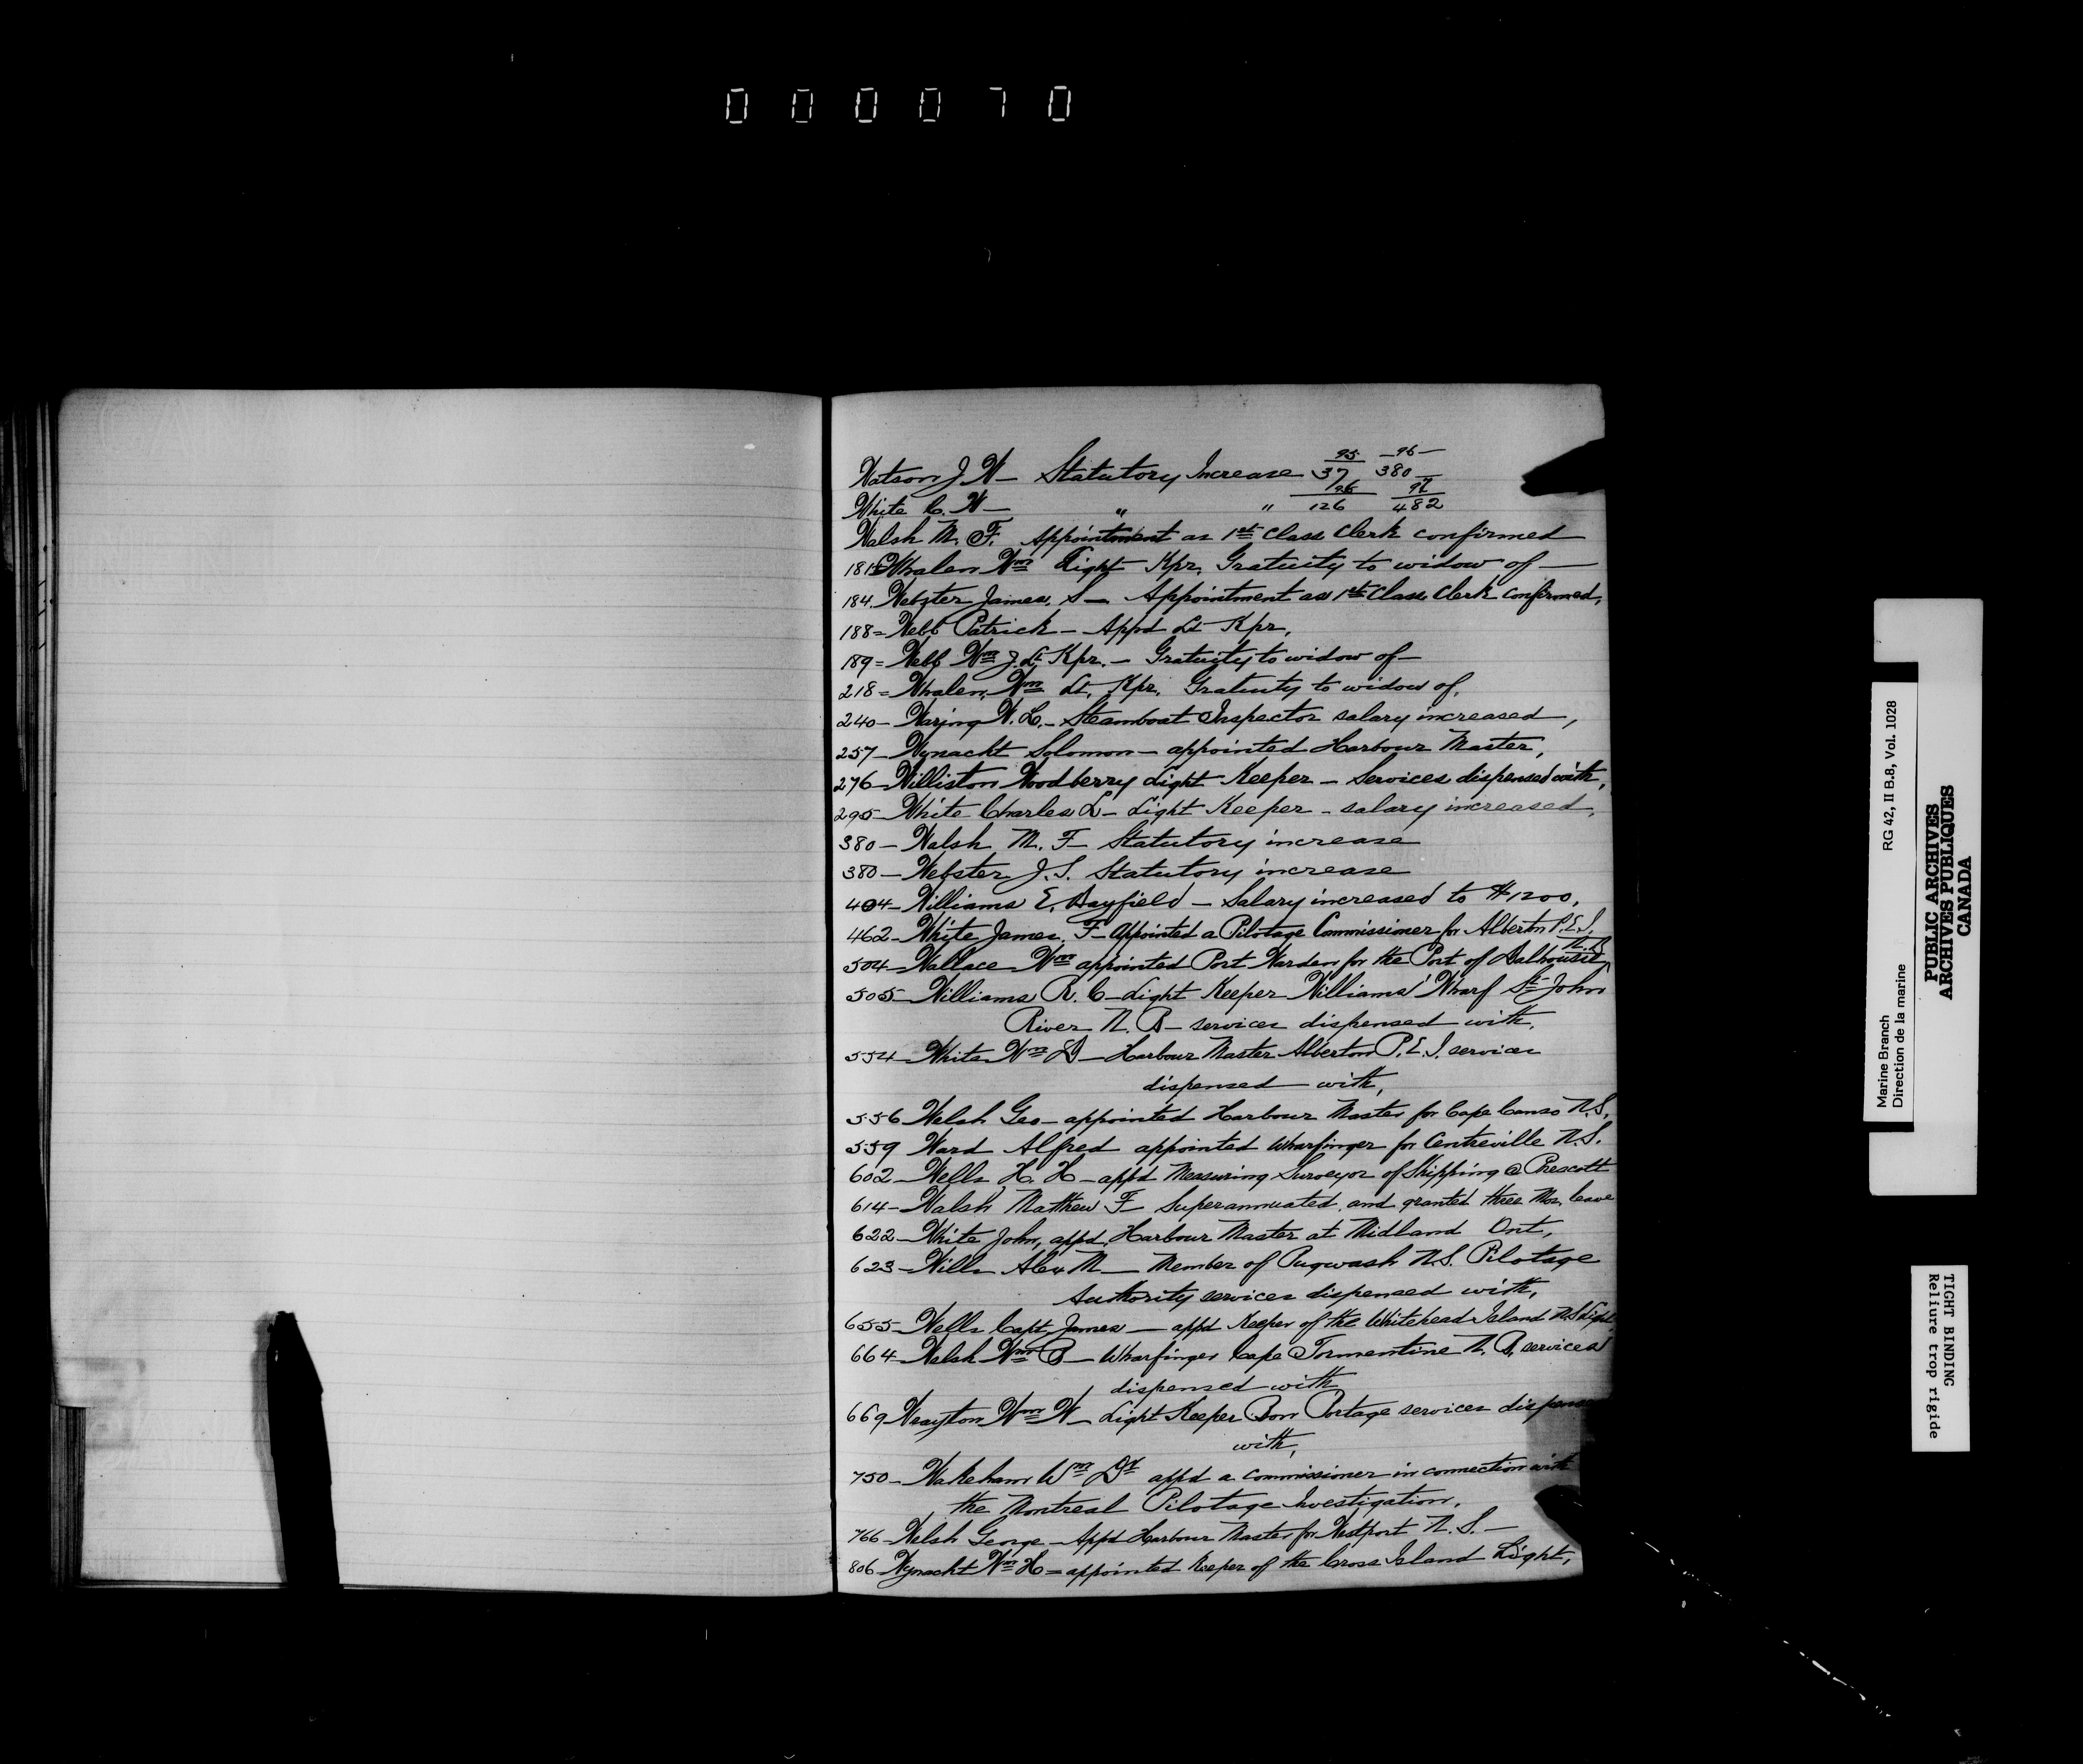 000070
95 - 96 -
Watson J. W - Statutory Increase 37 380 -
96 97
White C. W - " " 126 482
Walsh M. F. Appointment as 1st Class Clerk confirmed
Whalen Wm Light Kpr. Gratuity to widow of -
184. Webster James. S - Appointment as 1st Class Clerk confirmed,
188 = Webb Patrick - Appd Lt Kpr,
189 = Webb Wm J. Lt Kpr. - Gratuity to widow of -
218 = Whalen, Wm Lt. Kpr. Gratuity to widow of,
240 - Waring W. L. - Steamboat Inspector salary increased,
257 - Wynacht Solomon - appointed Harbour Master,
276 - Williston Woodberry Light Keeper - Services dispensed with,
295 - White Charles L - Light Keeper - salary increased,
380 - Walsh M. F - Statutory increase
380 - Webster J. S. Statutory increase
404 - Williams E. Bayfield - Salary increased to $1200,
462 - White James. F - Appointed a Pilotage Commissioner for Alberton P.E.I.
N.B
504 - Wallace Wm appointed Port Warden for the Port of Dalhousie
505 - Williams R. C - Light Keeper Williams' Wharf St John
River N. B - services dispensed with,
554 - White Wm D - Harbour Master Alberton P.E.I. services
dispensed with,
556 Walsh Geo - appointed Harbour Master for Cape Canso N.S.
559 Ward Alfred appointed Wharfinger for Centreville N.S.
602 - Wells H. H - appd Measuring Surveyor of Shipping @ Prescott
614 - Walsh Matthew F Superannuated and granted three Mos. leave
622 - White John, appd. Harbour Master at Midland Ont,
623 - Wills Alex M - Member of Pugwash N.S. Pilotage
Authority services dispensed with,
655 - Wells Capt. James - appd Keeper of the Whitehead Island N.S Light
664 - Walsh Wm B - Wharfinger Cape Tormentine N. B. services
dispensed with
669 Wrayton Wm W - Light Keeper Bon Portage services dispensed
with,
750 - Wakeham Wm Dr appd a commissioner in connection with
the Montreal Pilotage Investigation,
766 - Welsh George - Appd Harbour Master for Westport N. S. -
806 - Wynacht Wm H = appointed Keeper of the Cross Island Light,
Marine Branch RG 42, II B.8, Vol. 1028
Direction de la marine
PUBLIC ARCHIVES
ARCHIVES PUBLIQUES
CANADA
TIGHT BINDING
Reliure trop rigide